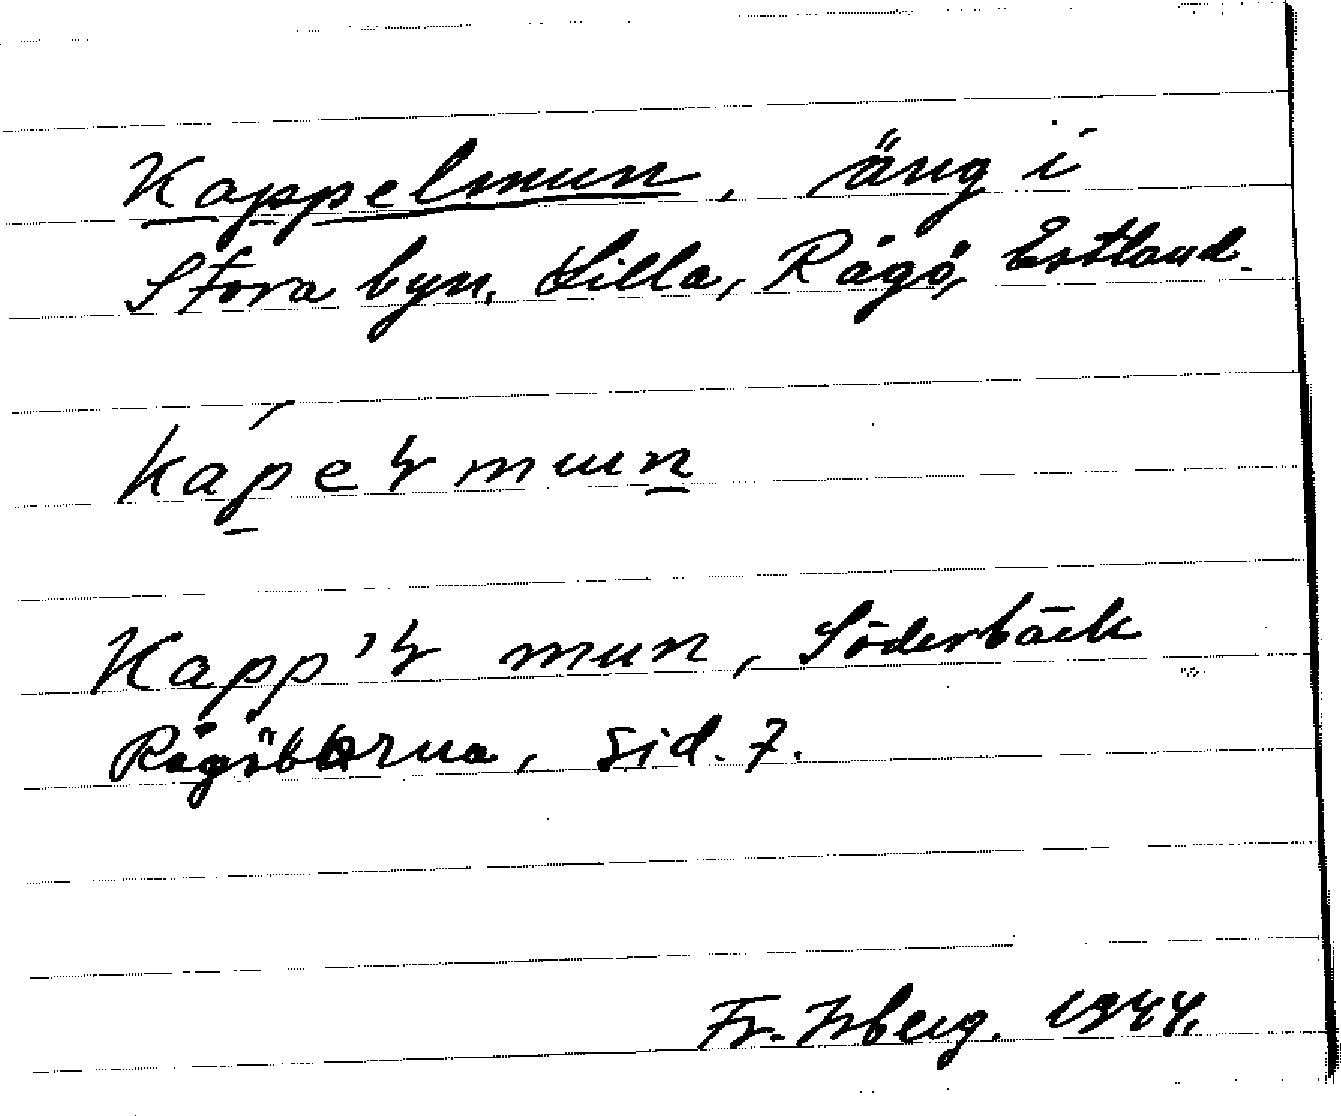 Kappelmun, äng i
Stora byn, Lilla, Rågö, Estland.
kápeɽmun
Kapp'ɽ mun, Söderbäck
Rågöborna, sid. 7.
Fr. Isberg. 1944.